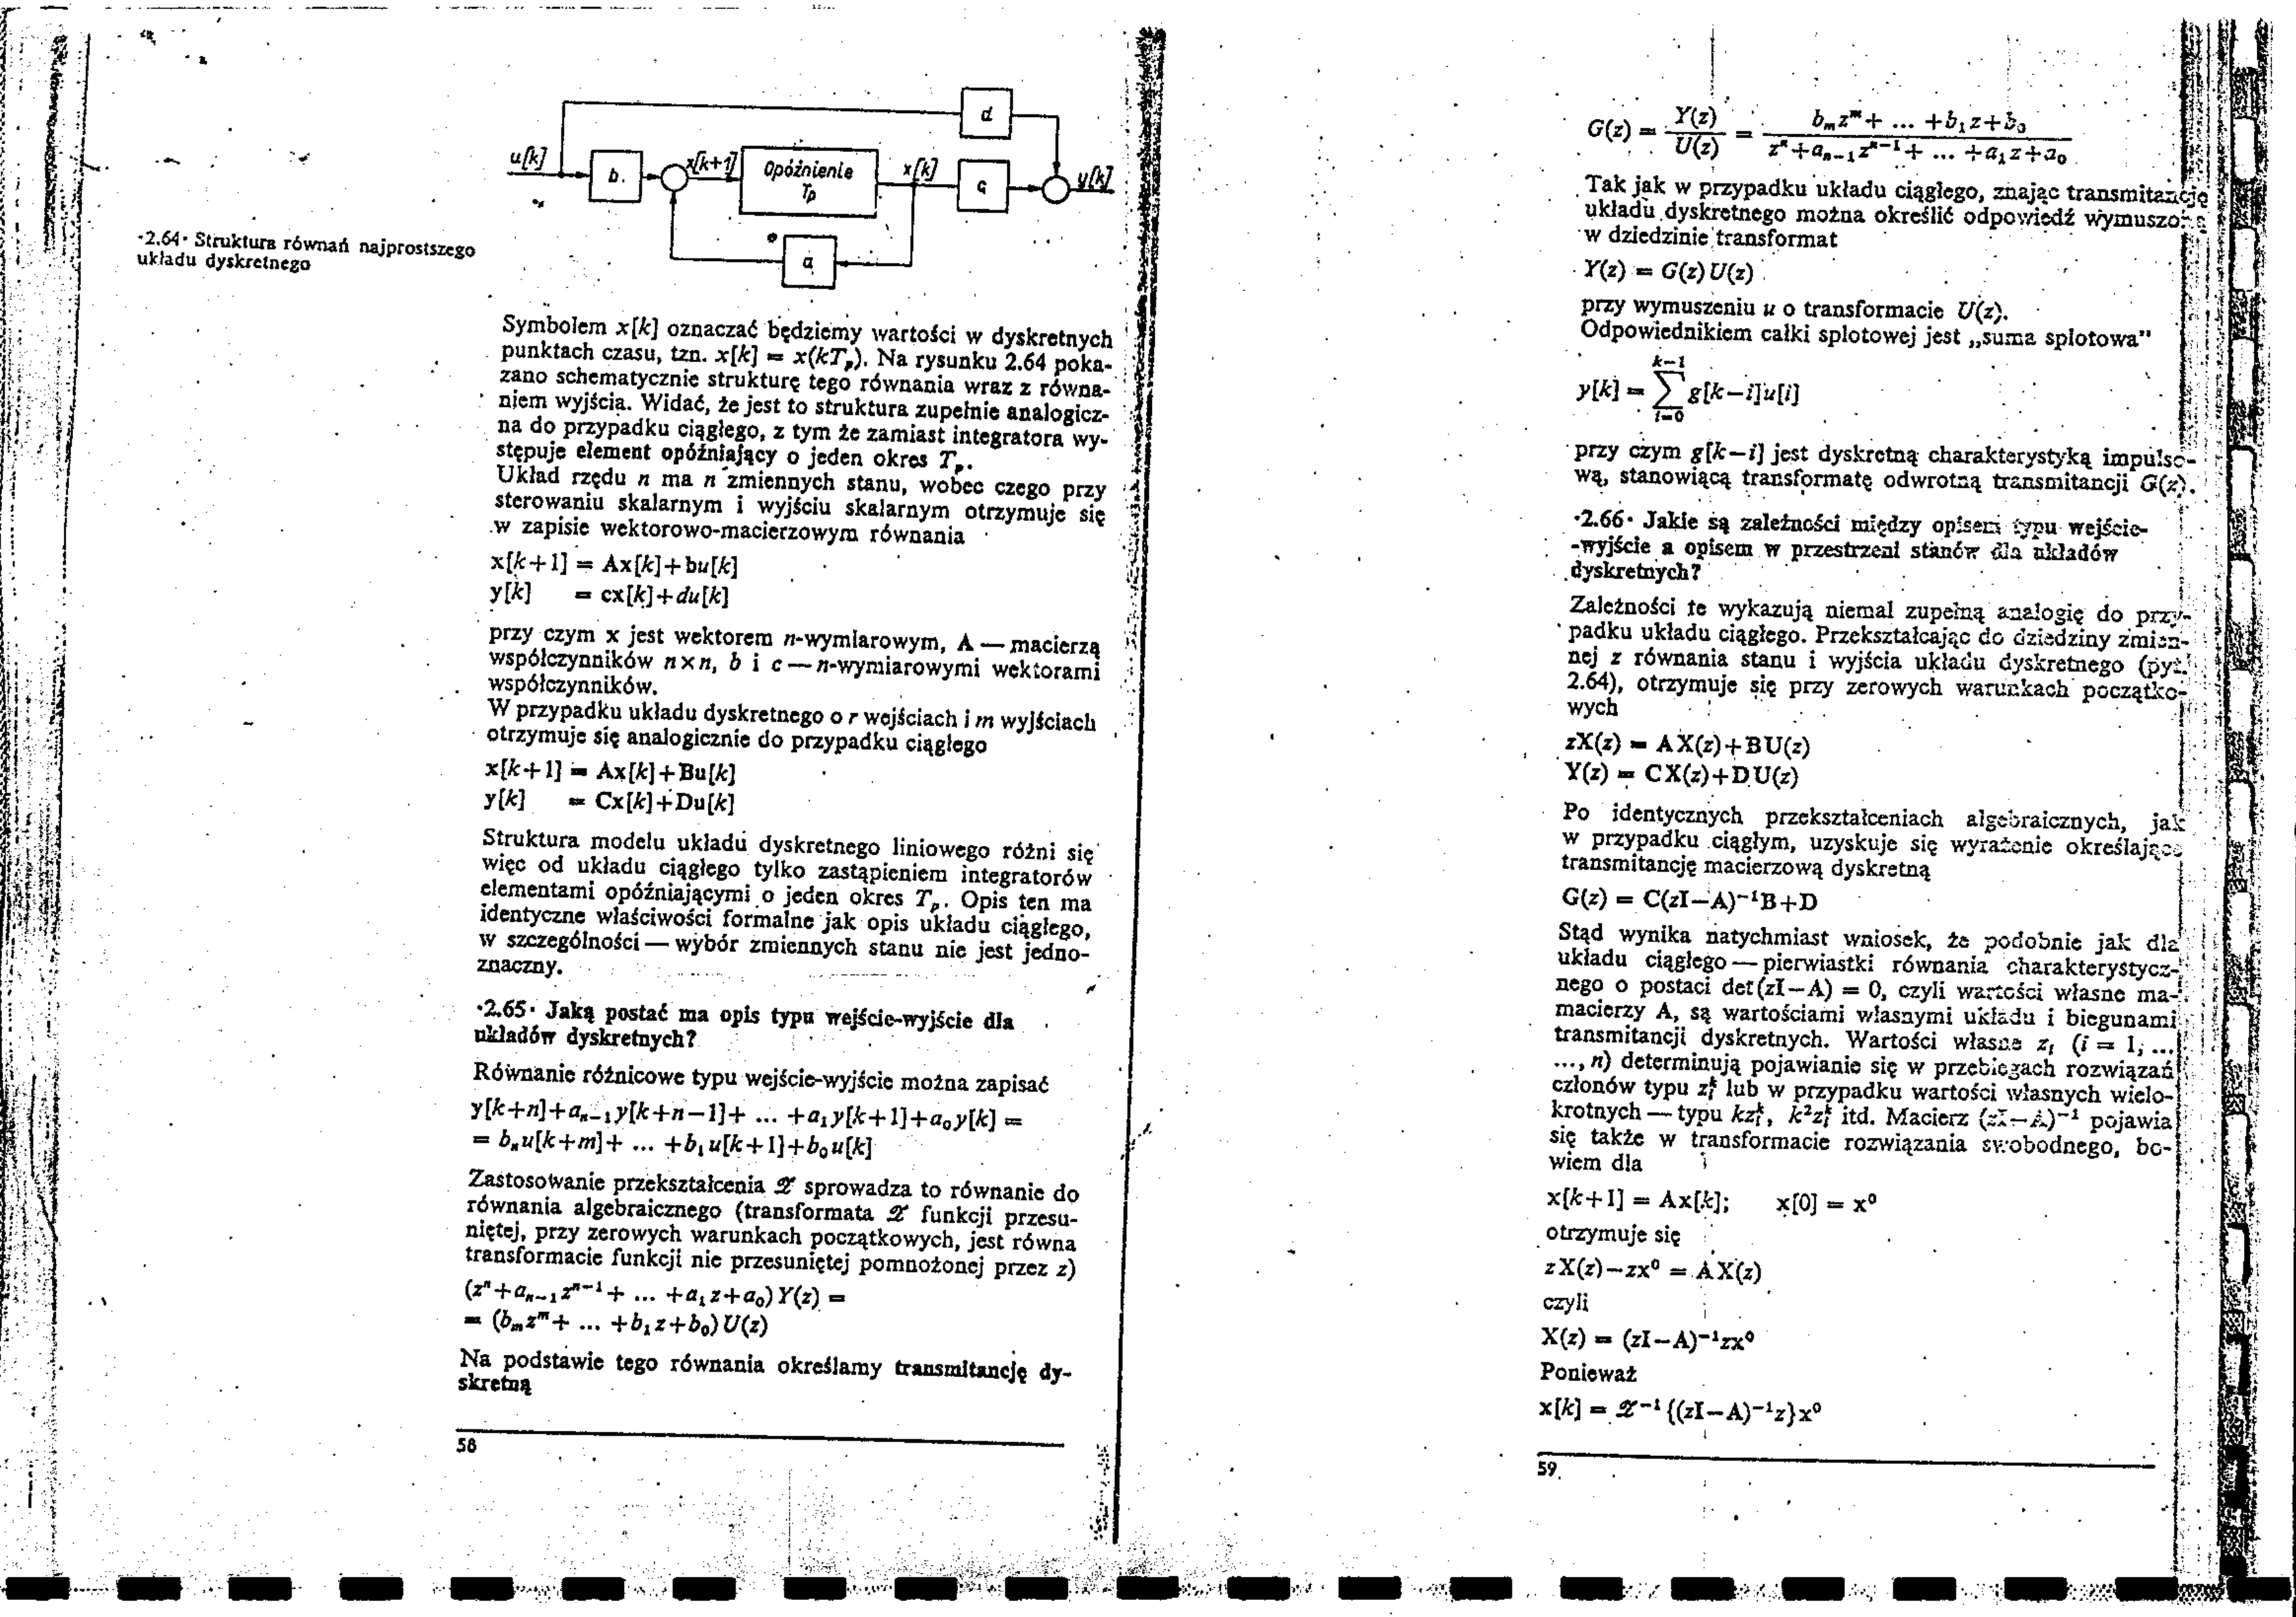 d
u[k]
b
x[k+1]
Opóźnienie
Tp
x[k]
c
y[k]
a
·2.64· Struktura równań najprostszego
układu dyskretnego
Symbolem x[k] oznaczać będziemy wartości w dyskretnych
punktach czasu, tzn. x[k] = x(kTₚ). Na rysunku 2.64 poka-
zano schematycznie strukturę tego równania wraz z równa-
niem wyjścia. Widać, że jest to struktura zupełnie analogicz-
na do przypadku ciągłego, z tym że zamiast integratora wy-
stępuje element opóźniający o jeden okres Tₚ.
Układ rzędu n ma n zmiennych stanu, wobec czego przy
sterowaniu skalarnym i wyjściu skalarnym otrzymuje się
w zapisie wektorowo-macierzowym równania
x[k+1] = Ax[k]+bu[k]
y[k] = cx[k]+du[k]
przy czym x jest wektorem n-wymiarowym, A — macierzą
współczynników n×n, b i c — n-wymiarowymi wektorami
współczynników.
W przypadku układu dyskretnego o r wejściach i m wyjściach
otrzymuje się analogicznie do przypadku ciągłego
x[k+1] = Ax[k]+Bu[k]
y[k] = Cx[k]+Du[k]
Struktura modelu układu dyskretnego liniowego różni się
więc od układu ciągłego tylko zastąpieniem integratorów
elementami opóźniającymi o jeden okres Tₚ. Opis ten ma
identyczne właściwości formalne jak opis układu ciągłego,
w szczególności — wybór zmiennych stanu nie jest jedno-
znaczny.
·2.65· Jaką postać ma opis typu wejście-wyjście dla
układów dyskretnych?
Równanie różnicowe typu wejście-wyjście można zapisać
y[k+n]+aₙ₋₁y[k+n−1]+ ... +a₁y[k+1]+a₀y[k] =
= bₙu[k+m]+ ... +b₁u[k+1]+b₀u[k]
Zastosowanie przekształcenia 𝒵 sprowadza to równanie do
równania algebraicznego (transformata 𝒵 funkcji przesu-
niętej, przy zerowych warunkach początkowych, jest równa
transformacie funkcji nie przesuniętej pomnożonej przez z)
(zⁿ+aₙ₋₁zⁿ⁻¹+ ... +a₁z+a₀)Y(z) =
= (bₘzᵐ+ ... +b₁z+b₀)U(z)
Na podstawie tego równania określamy transmitancję dy-
skretną
58
G(z) = Y(z)/U(z) = (bₘzᵐ+ ... +b₁z+b₀)/(zⁿ+aₙ₋₁zⁿ⁻¹+ ... +a₁z+a₀)
Tak jak w przypadku układu ciągłego, znając transmitancję
układu dyskretnego można określić odpowiedź wymuszoną
w dziedzinie transformat
Y(z) = G(z)U(z)
przy wymuszeniu u o transformacie U(z).
Odpowiednikiem całki splotowej jest „suma splotowa”
k−1
y[k] = ∑ g[k−i]u[i]
i=0
przy czym g[k−i] jest dyskretną charakterystyką impulso-
wą, stanowiącą transformatę odwrotną transmitancji G(z).
·2.66· Jakie są zależności między opisem typu wejście-
-wyjście a opisem w przestrzeni stanów dla układów
dyskretnych?
Zależności te wykazują niemal zupełną analogię do przy-
padku układu ciągłego. Przekształcając do dziedziny zmien-
nej z równania stanu i wyjścia układu dyskretnego (pyt.
2.64), otrzymuje się przy zerowych warunkach początko-
wych
zX(z) = AX(z)+BU(z)
Y(z) = CX(z)+DU(z)
Po identycznych przekształceniach algebraicznych, jak
w przypadku ciągłym, uzyskuje się wyrażenie określające
transmitancję macierzową dyskretną
G(z) = C(zI−A)⁻¹B+D
Stąd wynika natychmiast wniosek, że podobnie jak dla
układu ciągłego — pierwiastki równania charakterystycz-
nego o postaci det(zI−A) = 0, czyli wartości własne ma-
macierzy A, są wartościami własnymi układu i biegunami
transmitancji dyskretnych. Wartości własne zᵢ (i = 1, ...
..., n) determinują pojawianie się w przebiegach rozwiązań
członów typu zᵢᵏ lub w przypadku wartości własnych wielo-
krotnych — typu kzᵢᵏ, k²zᵢᵏ itd. Macierz (zI−A)⁻¹ pojawia
się także w transformacie rozwiązania swobodnego, bo-
wiem dla
x[k+1] = Ax[k]; x[0] = x⁰
otrzymuje się
zX(z)−zx⁰ = AX(z)
czyli
X(z) = (zI−A)⁻¹zx⁰
Ponieważ
x[k] = 𝒵⁻¹{(zI−A)⁻¹z}x⁰
59